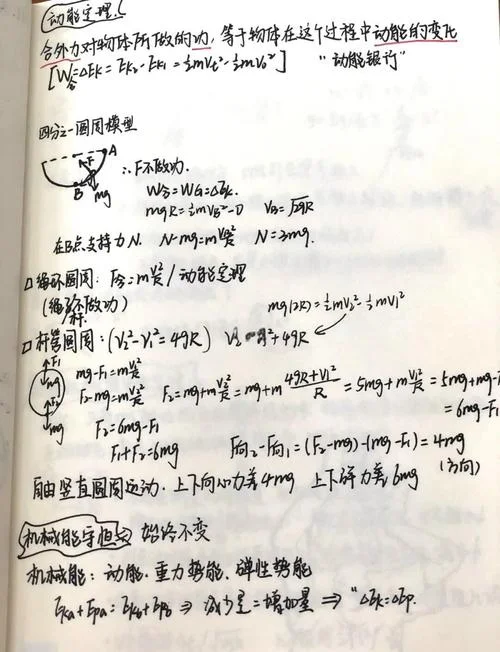 动能定理.
合外力对物体所做的功, 等于物体在这个过程中动能的变化
[W合=ΔEk=Ek₂-Ek₁=½mVt²-½mV₀²] "动能银行"
四分之一圆周模型
A
F
B
mg
∴F不做功.
W合=WG=ΔEk.
mgR=½mVB²-0 VB=√2gR
在B点支持力N. N-mg=mVB²/R N=3mg.
口绳环圆周: F合=mV²/R/动能定理
(绳不做功)
mg(2R)=½mV₂²-½mV₁²
杆
口杆管圆周: (V₂²-V₁²=4gR) V₂²=V₁²+4gR
F₁
mg
F₂
mg
mg-F₁=mV₁²/R
F₂-mg=mV₂²/R F₂=mg+mV₂²/R=mg+m(4gR+V₁²)/R=5mg+mV₁²/R=5mg+mg-F
=6mg-F₁
F₂=6mg-F₁
F₁+F₂=6mg F向₂-F向₁=(F₂-mg)-(mg-F₁)=4mg
(方向)
自由竖直圆周运动. 上下向心力差4mg 上下弹力差6mg
机械能守恒 始终不变
机械能: 动能. 重力势能. 弹性势能
Eka+Epa=Ekb+Epb ⇒ 减少量=增加量 ⇒ "ΔEk=ΔEp.